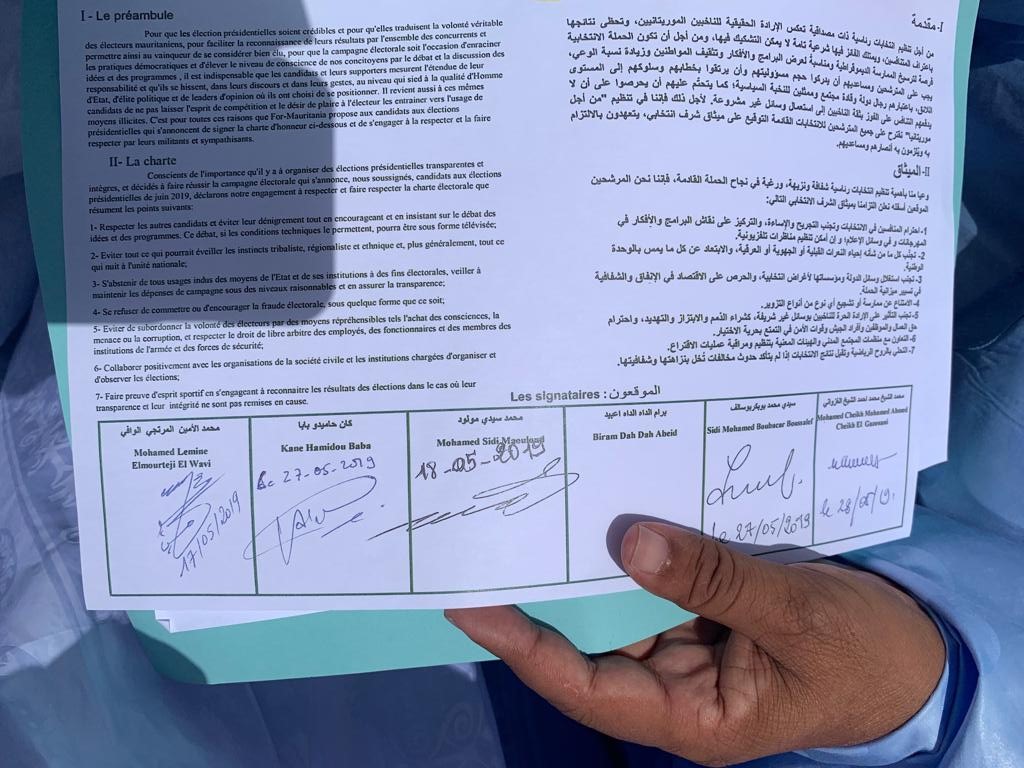 I - Le préambule
Pour que les élection présidentielles soient crédibles et pour qu'elles traduisent la volonté véritable
des électeurs mauritaniens, pour faciliter la reconnaissance de leurs résultats par l'ensemble des concurrents et
permettre ainsi au vainqueur de se considérer bien élu, pour que la campagne électorale soit l'occasion d'enraciner
les pratiques démocratiques et d'élever le niveau de conscience de nos concitoyens par le débat et la discussion des
idées et des programmes , il est indispensable que les candidats et leurs supporters mesurent l'étendue de leur
responsabilité et qu'ils se hissent, dans leurs discours et dans leurs gestes, au niveau qui sied à la qualité d'Homme
d'Etat, d'élite politique et de leaders d'opinion où ils ont choisi de se positionner. Il revient aussi à ces mêmes
candidats de ne pas laisser l'esprit de compétition et le désir de plaire à l'électeur les entrainer vers l'usage de
moyens illicites. C'est pour toutes ces raisons que For-Mauritania propose aux candidats aux élections
présidentielles qui s'annoncent de signer la charte d'honneur ci-dessous et de s'engager à la respecter et la faire
respecter par leurs militants et sympathisants.
II- La charte
Conscients de l'importance qu'il y a à organiser des élections présidentielles transparentes et
intègres, et décidés à faire réussir la campagne électorale qui s'annonce, nous soussignés, candidats aux élections
présidentielles de juin 2019, déclarons notre engagement à respecter et faire respecter la charte électorale que
résument les points suivants:
1- Respecter les autres candidats et éviter leur dénigrement tout en encourageant et en insistant sur le débat des
idées et des programmes. Ce débat, si les conditions techniques le permettent, pourra être sous forme télévisée;
2- Eviter tout ce qui pourrait éveiller les instincts tribaliste, régionaliste et ethnique et, plus généralement, tout ce
qui nuit à l'unité nationale;
3- S'abstenir de tous usages indus des moyens de l'Etat et de ses institutions à des fins électorales, veiller à
maintenir les dépenses de campagne sous des niveaux raisonnables et en assurer la transparence;
4- Se refuser de commettre ou d'encourager la fraude électorale, sous quelque forme que ce soit;
5- Eviter de subordonner la volonté des électeurs par des moyens répréhensibles tels l'achat des consciences, la
menace ou la corruption, et respecter le droit de libre arbitre des employés, des fonctionnaires et des membres des
institutions de l'armée et des forces de sécurité;
6- Collaborer positivement avec les organisations de la société civile et les institutions chargées d'organiser et
d'observer les élections;
7- Faire preuve d'esprit sportif en s'engageant à reconnaitre les résultats des élections dans le cas où leur
transparence et leur intégrité ne sont pas remises en cause.
I- مقدمة
من أجل تنظيم انتخابات رئاسية ذات مصداقية تعكس الإرادة الحقيقية للناخبين الموريتانيين، وتحظى نتائجها
باعتراف المتنافسين، ويمتلك الفائز فيها شرعية تامة لا يمكن التشكيك فيها، ومن أجل أن تكون الحملة الانتخابية
فرصة لترسيخ الممارسة الديموقراطية ومناسبة لعرض البرامج والأفكار وتثقيف المواطنين وزيادة نسبة الوعي،
يجب على المترشحين ومساعديهم أن يدركوا حجم مسؤوليتهم وأن يرتقوا بخطابهم وسلوكهم إلى المستوى
اللائق، باعتبارهم رجال دولة وقادة مجتمع وممثلين للنخبة السياسية؛ كما يتحتم عليهم أن يحرصوا على أن لا
يدفعهم التنافس على الفوز بثقة الناخبين إلى استعمال وسائل غير مشروعة. لأجل ذلك فإننا في تنظيم "من أجل
موريتانيا" نقترح على جميع المترشحين للانتخابات القادمة التوقيع على ميثاق شرف انتخابي، يتعهدون بالالتزام
به ويلزمون به أنصارهم ومساعديهم.
II- الميثاق
وعيا منا بأهمية تنظيم انتخابات رئاسية شفافة ونزيهة، ورغبة في نجاح الحملة القادمة، فإننا نحن المرشحين
الموقعين أسفله نعلن التزامنا بميثاق الشرف الانتخابي التالي:
1- احترام المنافسين في الانتخابات وتجنب التجريح والإساءة، والتركيز على نقاش البرامج والأفكار في
المهرجانات و في وسائل الإعلام؛ وإن أمكن تنظيم مناظرات تلفزيونية.
2- تجنب كل ما من شأنه إحياء النعرات القبلية أو الجهوية أو العرقية، والابتعاد عن كل ما يمس بالوحدة
الوطنية.
3- تجنب استغلال وسائل الدولة ومؤسساتها لأغراض انتخابية، والحرص على الاقتصاد في الإنفاق والشفافية
في تسيير ميزانية الحملة.
4- الامتناع عن ممارسة أو تشجيع أي نوع من أنواع التزوير.
5- تجنب التأثير على الإرادة الحرة للناخبين بوسائل غير شريفة، كشراء الذمم والابتزاز والتهديد، واحترام
حق العمال والموظفين وأفراد الجيش وقوات الأمن في التمتع بحرية الاختيار.
6- التعاون مع منظمات المجتمع المدني والهيئات المعنية بتنظيم ومراقبة عمليات الاقتراع.
7- التحلي بالروح الرياضية وتقبل نتائج الانتخابات إذا لم يتأكد حدوث مخالفات تخل بنزاهتها وشفافيتها.
Les signataires : الموقعون:
محمد الأمين المرتجي الوافي
Mohamed Lemine
Elmourteji El Wavi
17/05/2019
كان حاميدو بابا
Kane Hamidou Baba
Le 27-05-2019
محمد سيدي مولود
Mohamed Sidi Maouloud
18-05-2019
برام الداه الداه اعبيد
Biram Dah Dah Abeid
سيدي محمد بوبكر بوسالف
Sidi Mohamed Boubacar Boussalef
le 27/05/2019
محمد الشيخ محمد أحمد الشيخ الغزواني
Mohamed Cheikh Mohamed Ahmed
Cheikh El Gazouani
le 28/05/19.